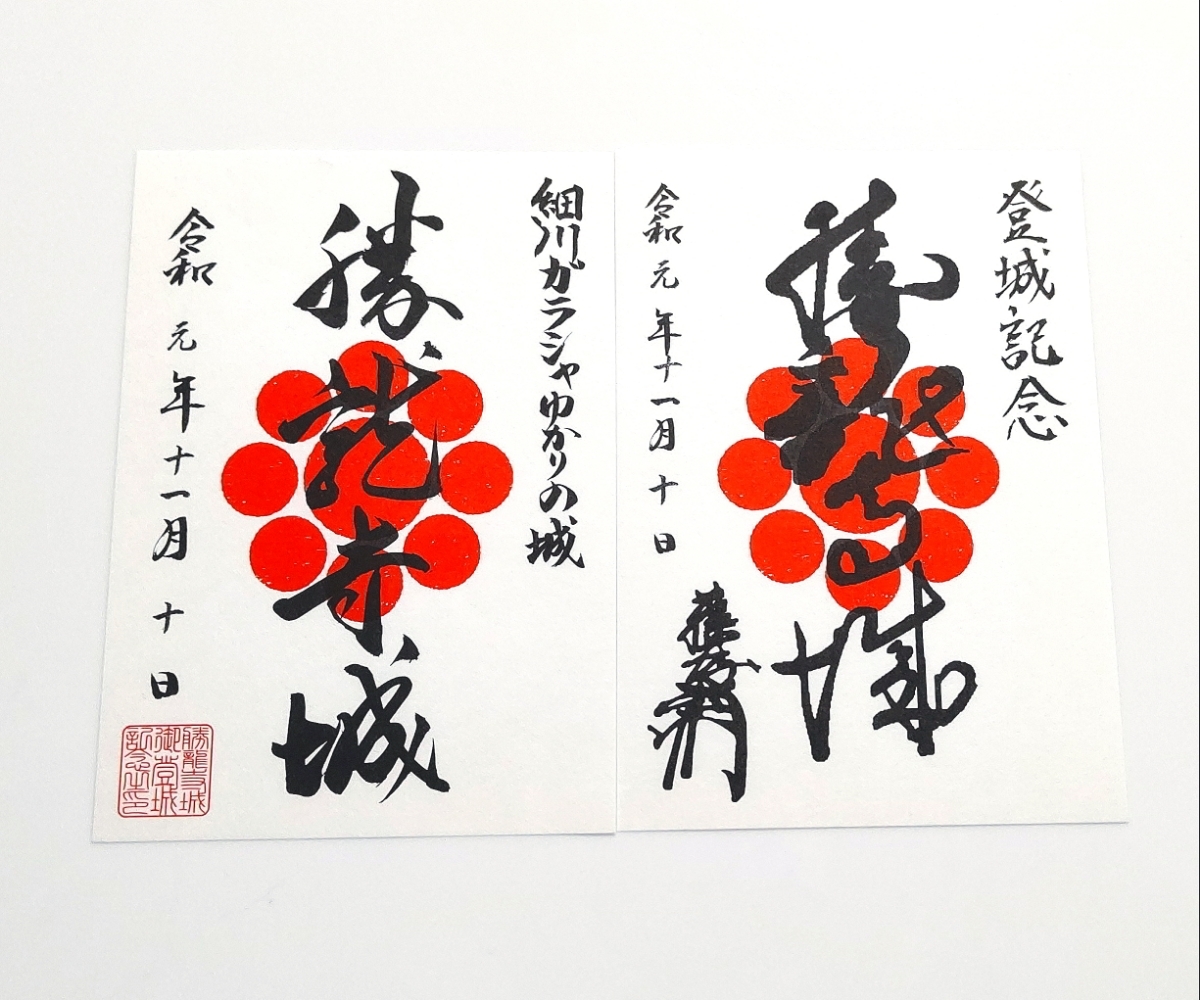 登城記念
勝龍寺城
令和元年十一月十日
細川ガラシャゆかりの城
勝龍寺城
令和元年十一月十日
勝龍寺城
御登城
記念之印